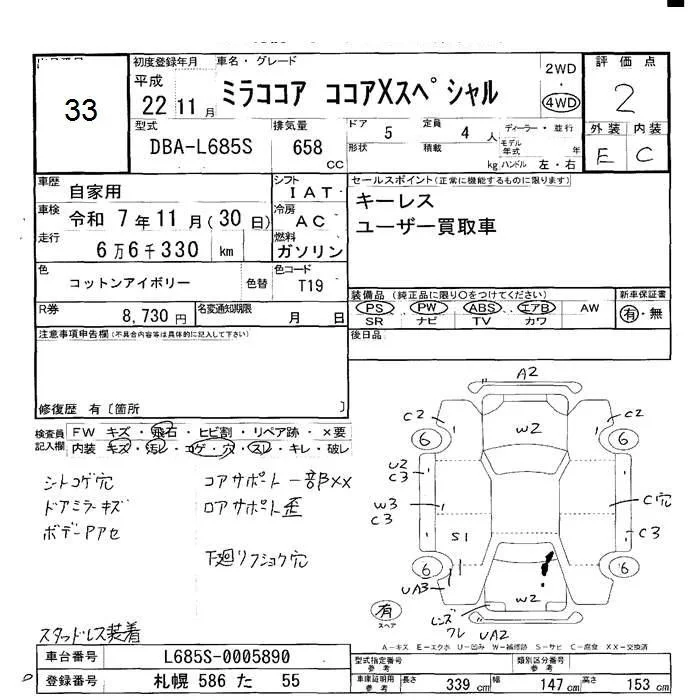 33
初度登録年月 車名・グレード
平成 22 11月 ミラココア ココアXスペシャル
2WD
4WD
評価点
2
外装 内装
E C
型式 排気量 ドア 5 定員 4人 ディーラー・並行
DBA-L685S 658 CC
形状 積載 kg モデル年式 年
ハンドル 左・右
車歴 自家用 シフト IAT
車検 令和 7年11月(30日) 冷房 AC
走行 6万6千330 km 燃料 ガソリン
セールスポイント(正常に機能するものに限ります)
キーレス
ユーザー買取車
色 コットンアイボリー 色替 色コード T19
R券 8,730円 名変通知期限 月 日
装備品(純正品に限り○をつけてください) 新車保証書
PS PW ABS エアB AW 有・無
SR ナビ TV カワ
注意事項申告欄(不具合内容等は具体的に記入して下さい)
後日品
修復歴 有〔箇所 〕
検査員記入欄 FW キズ・飛石・ヒビ割・リペア跡・×要
内装 キズ・汚レ・コゲ・穴・スレ・キレ・破レ
シトコゲ穴
ドアミラーキズ
ボデーPアセ
コアサポート一部XX
ロアサポート歪
下廻リフショク穴
スタッドレス装着
A2
C2 W2 C2
6 6
U2
C3
W3
C3
C穴
C3
S1
6 6
UA3
W2
レンズワレ
UA2
有
スペア
A-キズ E-エクボ U-凹み W-補修跡 S-サビ C-腐食 XX-交換済
車台番号 L685S-0005890
登録番号 札幌 586 た 55
型式指定番号 参考 類別区分番号 参考
車庫証明用 参考 長さ 339 cm 幅 147 cm 高さ 153 cm